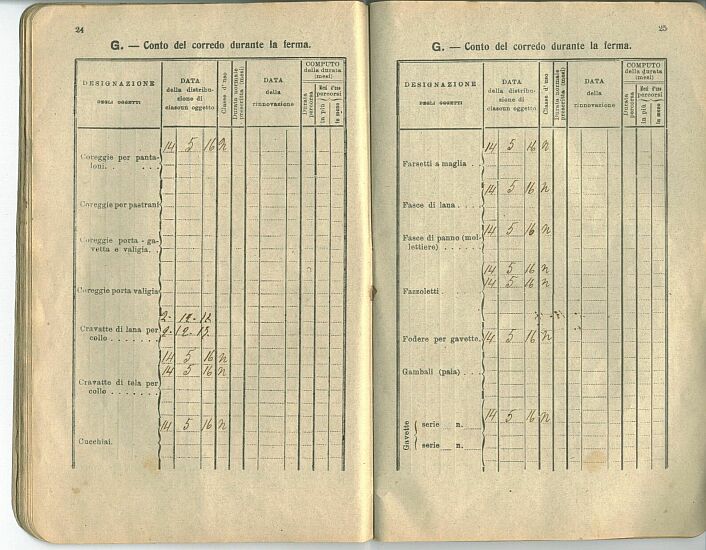 24
G. — Conto del corredo durante la ferma.
DESIGNAZIONE
DEGLI OGGETTI
DATA
della distribu-
zione di
ciascun oggetto
Classe d'uso
Durata normale
prescritta (mesi)
DATA
della
rinnovazione
COMPUTO
della durata
(mesi)
Durata
percorsa
Mesi d'uso
percorsi
in più
in meno
14 5 16 n
Coreggie per panta-
loni. . . . .
Coreggie per pastrani
Coreggie porta - ga-
vetta e valigia. .
Coreggie porta valigia
Cravatte di lana per
collo . . . . . . .
14 5 16 n
14 5 16 n
Cravatte di tela per
collo . . . . . . .
14 5 16 n
Cucchiai.
25
G. — Conto del corredo durante la ferma.
DESIGNAZIONE
DEGLI OGGETTI
DATA
della distribu-
zione di
ciascun oggetto
Classe d'uso
Durata normale
prescritta (mesi)
DATA
della
rinnovazione
COMPUTO
della durata
(mesi)
Durata
percorsa
Mesi d'uso
percorsi
in più
in meno
14 5 16 n
Farsetti a maglia . .
14 5 16 n
Fasce di lana . . . .
14 5 16 n
Fasce di panno (mol-
lettiere) . . . . . .
14 5 16 n
14 5 16 n
Fazzoletti . . .
Fodere per gavette. 14 5 16 n
Gambali (paia) . . .
14 5 16 n
Gavette
serie n.
serie n.